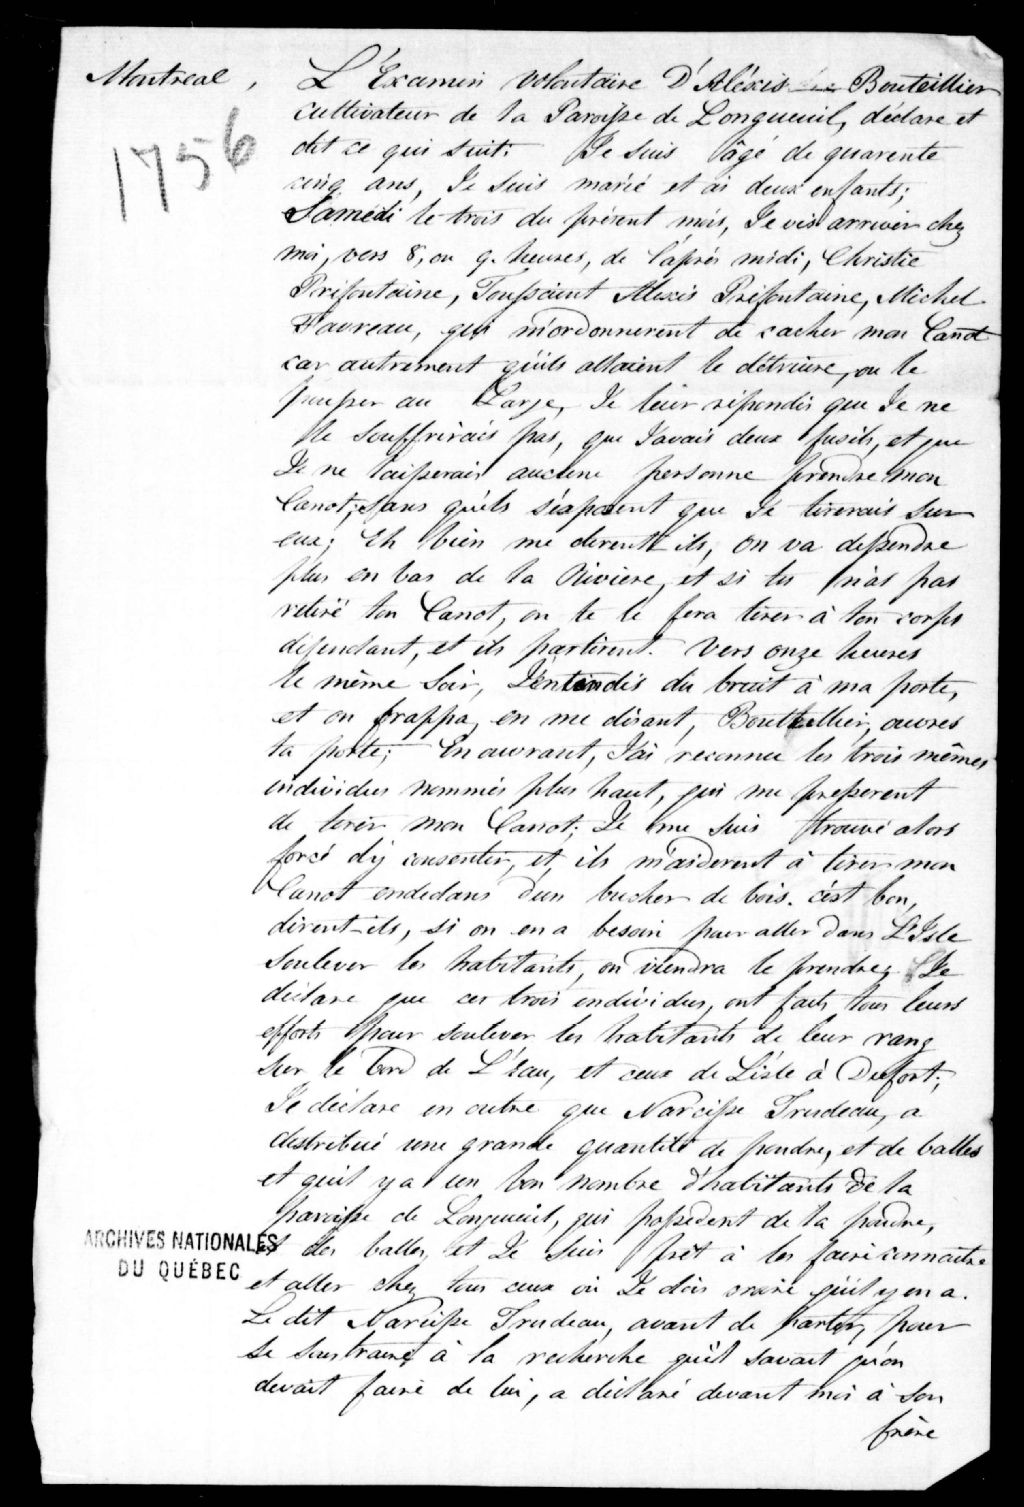 Montreal, L'Examen volontaire D'Aléxis Bouteillier
1756
cultivateur de la Paroisse de Longueuil, déclare et
dit ce qui suit. Je suis âgé de quarente
cinq ans, Je suis marié et ai deux enfants;
Samedi le trois du présent mois, Je vis arriver chez
moi, vers 8, ou 9. heures, de l'aprés midi, Christie
Préfontaine, Toussaint Alexis Préfontaine, Michel
Favreau, qui m'ordonnerent de cacher mon Canot
car autrement qu'ils allaient le détruire, ou le
pousser au Large, Je leur répondis que Je ne
le souffrirais pas, que J'avais deux fusils, et que
Je ne laisserais aucune personne prendre mon
Canot; sans qu'ils s'exposent que Je tirerais sur
eux; Eh bien me dirent ils, on va descendre
plus en bas de la Riviere, et si tu n'as pas
retiré ton Canot, on te le fera tirer à ton corps
défendant, et ils partirent. Vers onze heures
le même Soir, J'entendis du bruit à ma porte,
et on frappa, en me disant, Bouteillier, ouvres
ta porte; En ouvrant, J'ai reconnu les trois mêmes
individus nommés plus haut, qui me presserent
de tirer mon Canot; Je me suis trouvé alors
forcé d'y consentir, et ils m'aiderent à tirer mon
Canot endedans d'un bucher de bois. c'est bon,
dirent-ils, si on en a besoin pour aller dans L'Isle
soulever les habitants, on viendra le prendre. Je
déclare que ces trois individus, ont faits tous leurs
efforts pour soulever les habitants de leur rang
sur le bord de L'Eau, et ceux de L'isle à Dufort;
Je déclare en outre que Narcisse Trudeau, a
distribué une grande quantité de poudre, et de balles
et qu'il y a un bon nombre d'habitants de la
paroisse de Longueuil, qui possedent de la poudre,
ARCHIVES NATIONALES
DU QUÉBEC
et des balles, et Je suis prêt à les faire connaitre
et aller chez tous ceux où Je dois croire qu'il y en a.
Le dit Narcisse Trudeau, avant de partir, pour
se soustraire à la recherche qu'il savait qu'on
devait faire de lui, a déclaré devant moi à son
frère